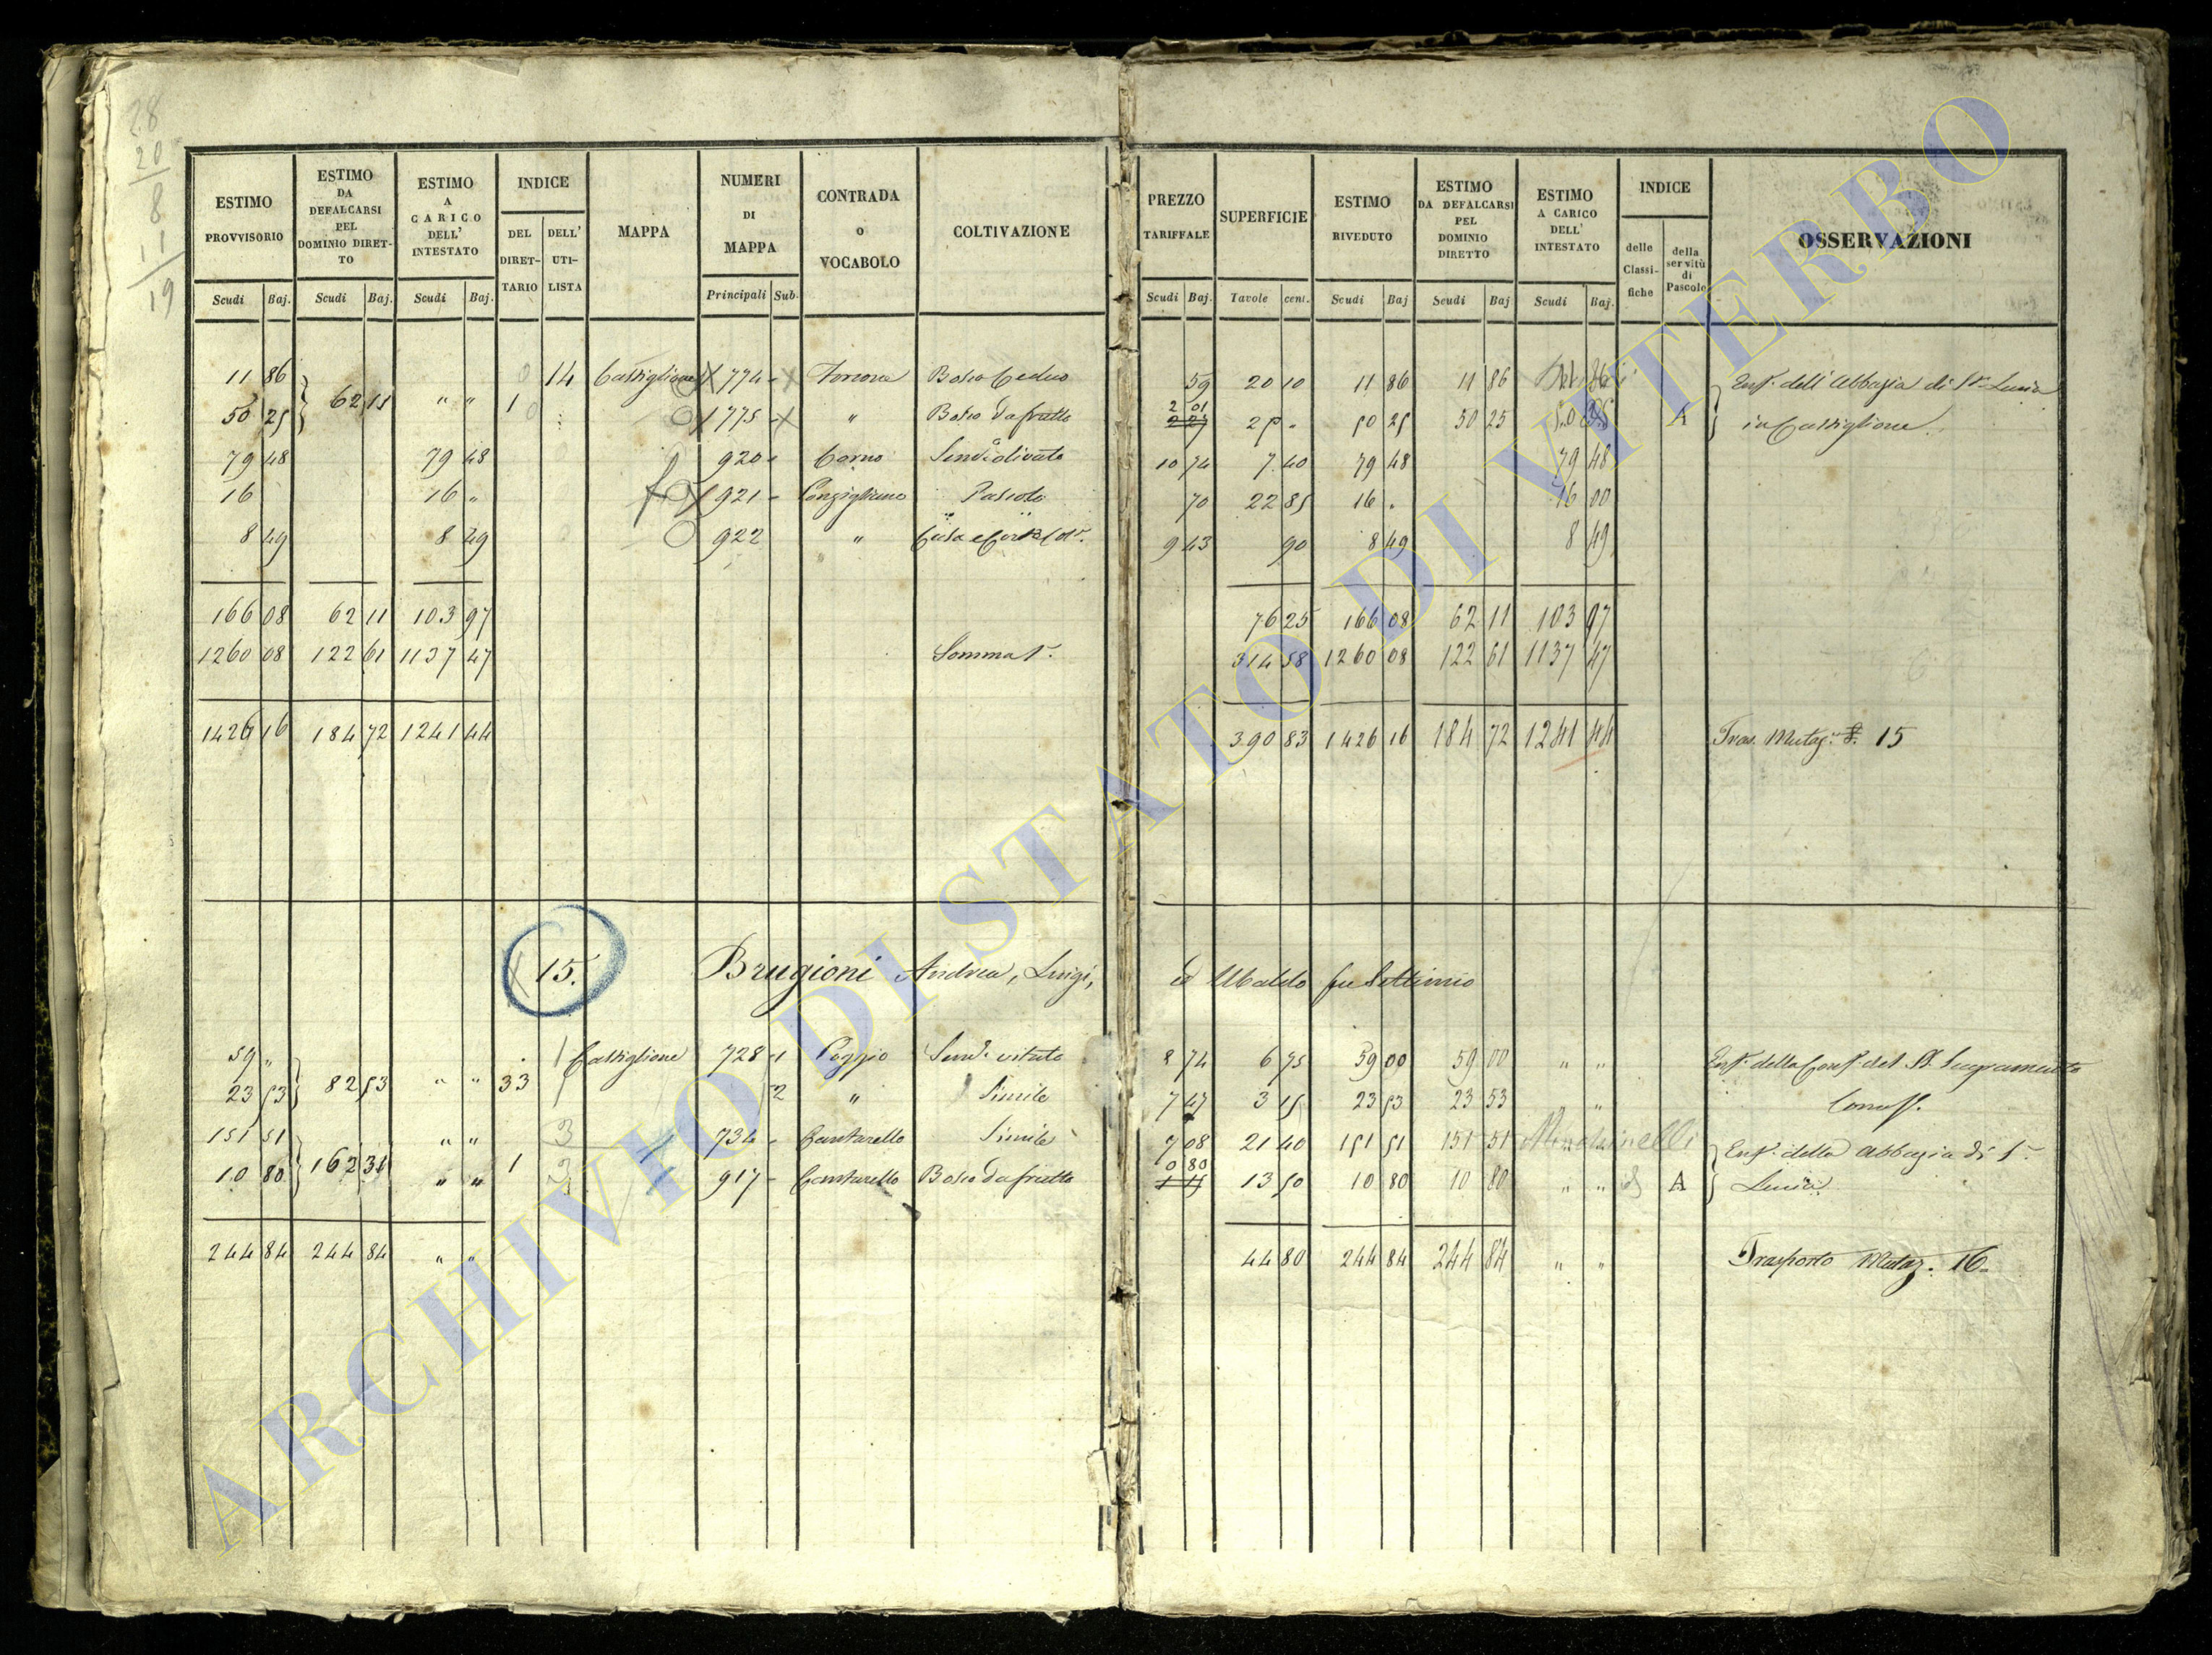 28
20
8
11
19
ESTIMO PROVVISORIO | ESTIMO DA DEFALCARSI PEL DOMINIO DIRETTO | ESTIMO A CARICO DELL' INTESTATO | INDICE | MAPPA | NUMERI DI MAPPA | CONTRADA o VOCABOLO | COLTIVAZIONE | PREZZO TARIFFALE | SUPERFICIE | ESTIMO RIVEDUTO | ESTIMO DA DEFALCARSI PEL DOMINIO DIRETTO | ESTIMO A CARICO DELL' INTESTATO | INDICE | OSSERVAZIONI
DEL DIRET-TARIO | DELL' UTI-LISTA | delle Classi-fiche | della servitù di Pascolo
Scudi | Baj. | Scudi | Baj. | Scudi | Baj. | Principali | Sub. | Scudi | Baj. | Tavole | cent. | Scudi | Baj | Scudi | Baj | Scudi | Baj.
11 86 | 62 11 | " " | 14 | Castiglione | 774 - | Bosco Ceduo | 59 | 20 10 | 11 86 | 11 86 | Enf. dell'Abbazia di S. Lucia
50 25 | 1 | 775 - | " | Bosco da frutto | 2 01 | 25 - | 50 25 | 50 25 | A | in Castiglione
79 48 | 79 48 | 920 - | Corno | Semo olivato | 10 74 | 7 40 | 79 48 | 79 48
16 | 16 " | 921 - | Conzigliano | Pascolo | 70 | 22 85 | 16 - | 16 00
8 49 | 8 49 | 922 | " | Casa e Corte Col. | 9 43 | 90 | 8 49 | 8 49
166 08 | 62 11 | 103 97 | 76 25 | 166 08 | 62 11 | 103 97
1260 08 | 122 61 | 1137 47 | Somma 1. | 314 58 | 1260 08 | 122 61 | 1137 47
1426 16 | 184 72 | 1241 44 | 390 83 | 1426 16 | 184 72 | 1241 44 | Tras. Mutaz. 15
15. Brugioni Andrea, Luigi, ed Ubaldo fu Settimio
59 " | 82 53 | " " | 33 | 1 | Castiglione | 728 - 1 | Poggio | Sem. vitato | 8 74 | 6 75 | 59 00 | 59 00 | " " | Enf. della Conf. del SS. Sagramento
23 53 | 2 | " | Simile | 7 47 | 3 15 | 23 53 | 23 53 | "
151 51 | 162 31 | " " | 1 | 3 | 734 - | Cantarello | Simile | 7 08 | 21 40 | 151 51 | 151 51 | Enf. della Abbazia di S.
10 80 | " " | 3 | 917 - | Cantarello | Bosco da frutto | 0 80 | 13 50 | 10 80 | 10 80 | " " | A | Lucia
244 84 | 244 84 | " " | 44 80 | 244 84 | 244 84 | " " | Trasporto Mutaz. 16
ARCHIVIO DI STATO DI VITERBO